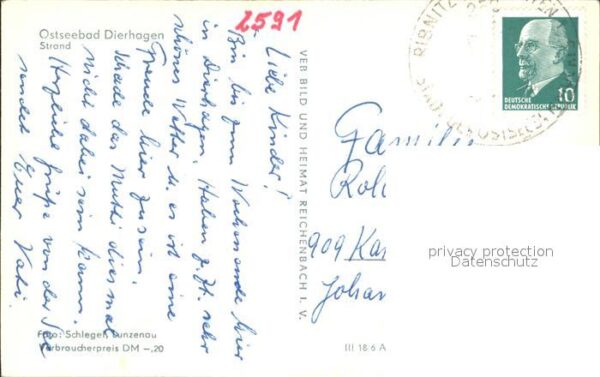 2591
Ostseebad Dierhagen
Strand
Liebe Kinder!
Bin bis zum Wochenende hier
in Dierhagen. Haben z. Zt. sehr
schönes Wetter u. es ist eine
Freude hier zu sein.
Schade das Mutti diesmal
nicht dabei sein kann.
Herzliche Grüße von der See
sendet Euer Vati.
Foto: Schlegel, Lunzenau
Verbraucherpreis DM -,20
VEB BILD UND HEIMAT REICHENBACH I. V.
III 18 6 A
RIBNITZ
DEUTSCHE
DEMOKRATISCHE REPUBLIK
10
Familie
Rol
909 Ka
Johan
privacy protection
Datenschutz